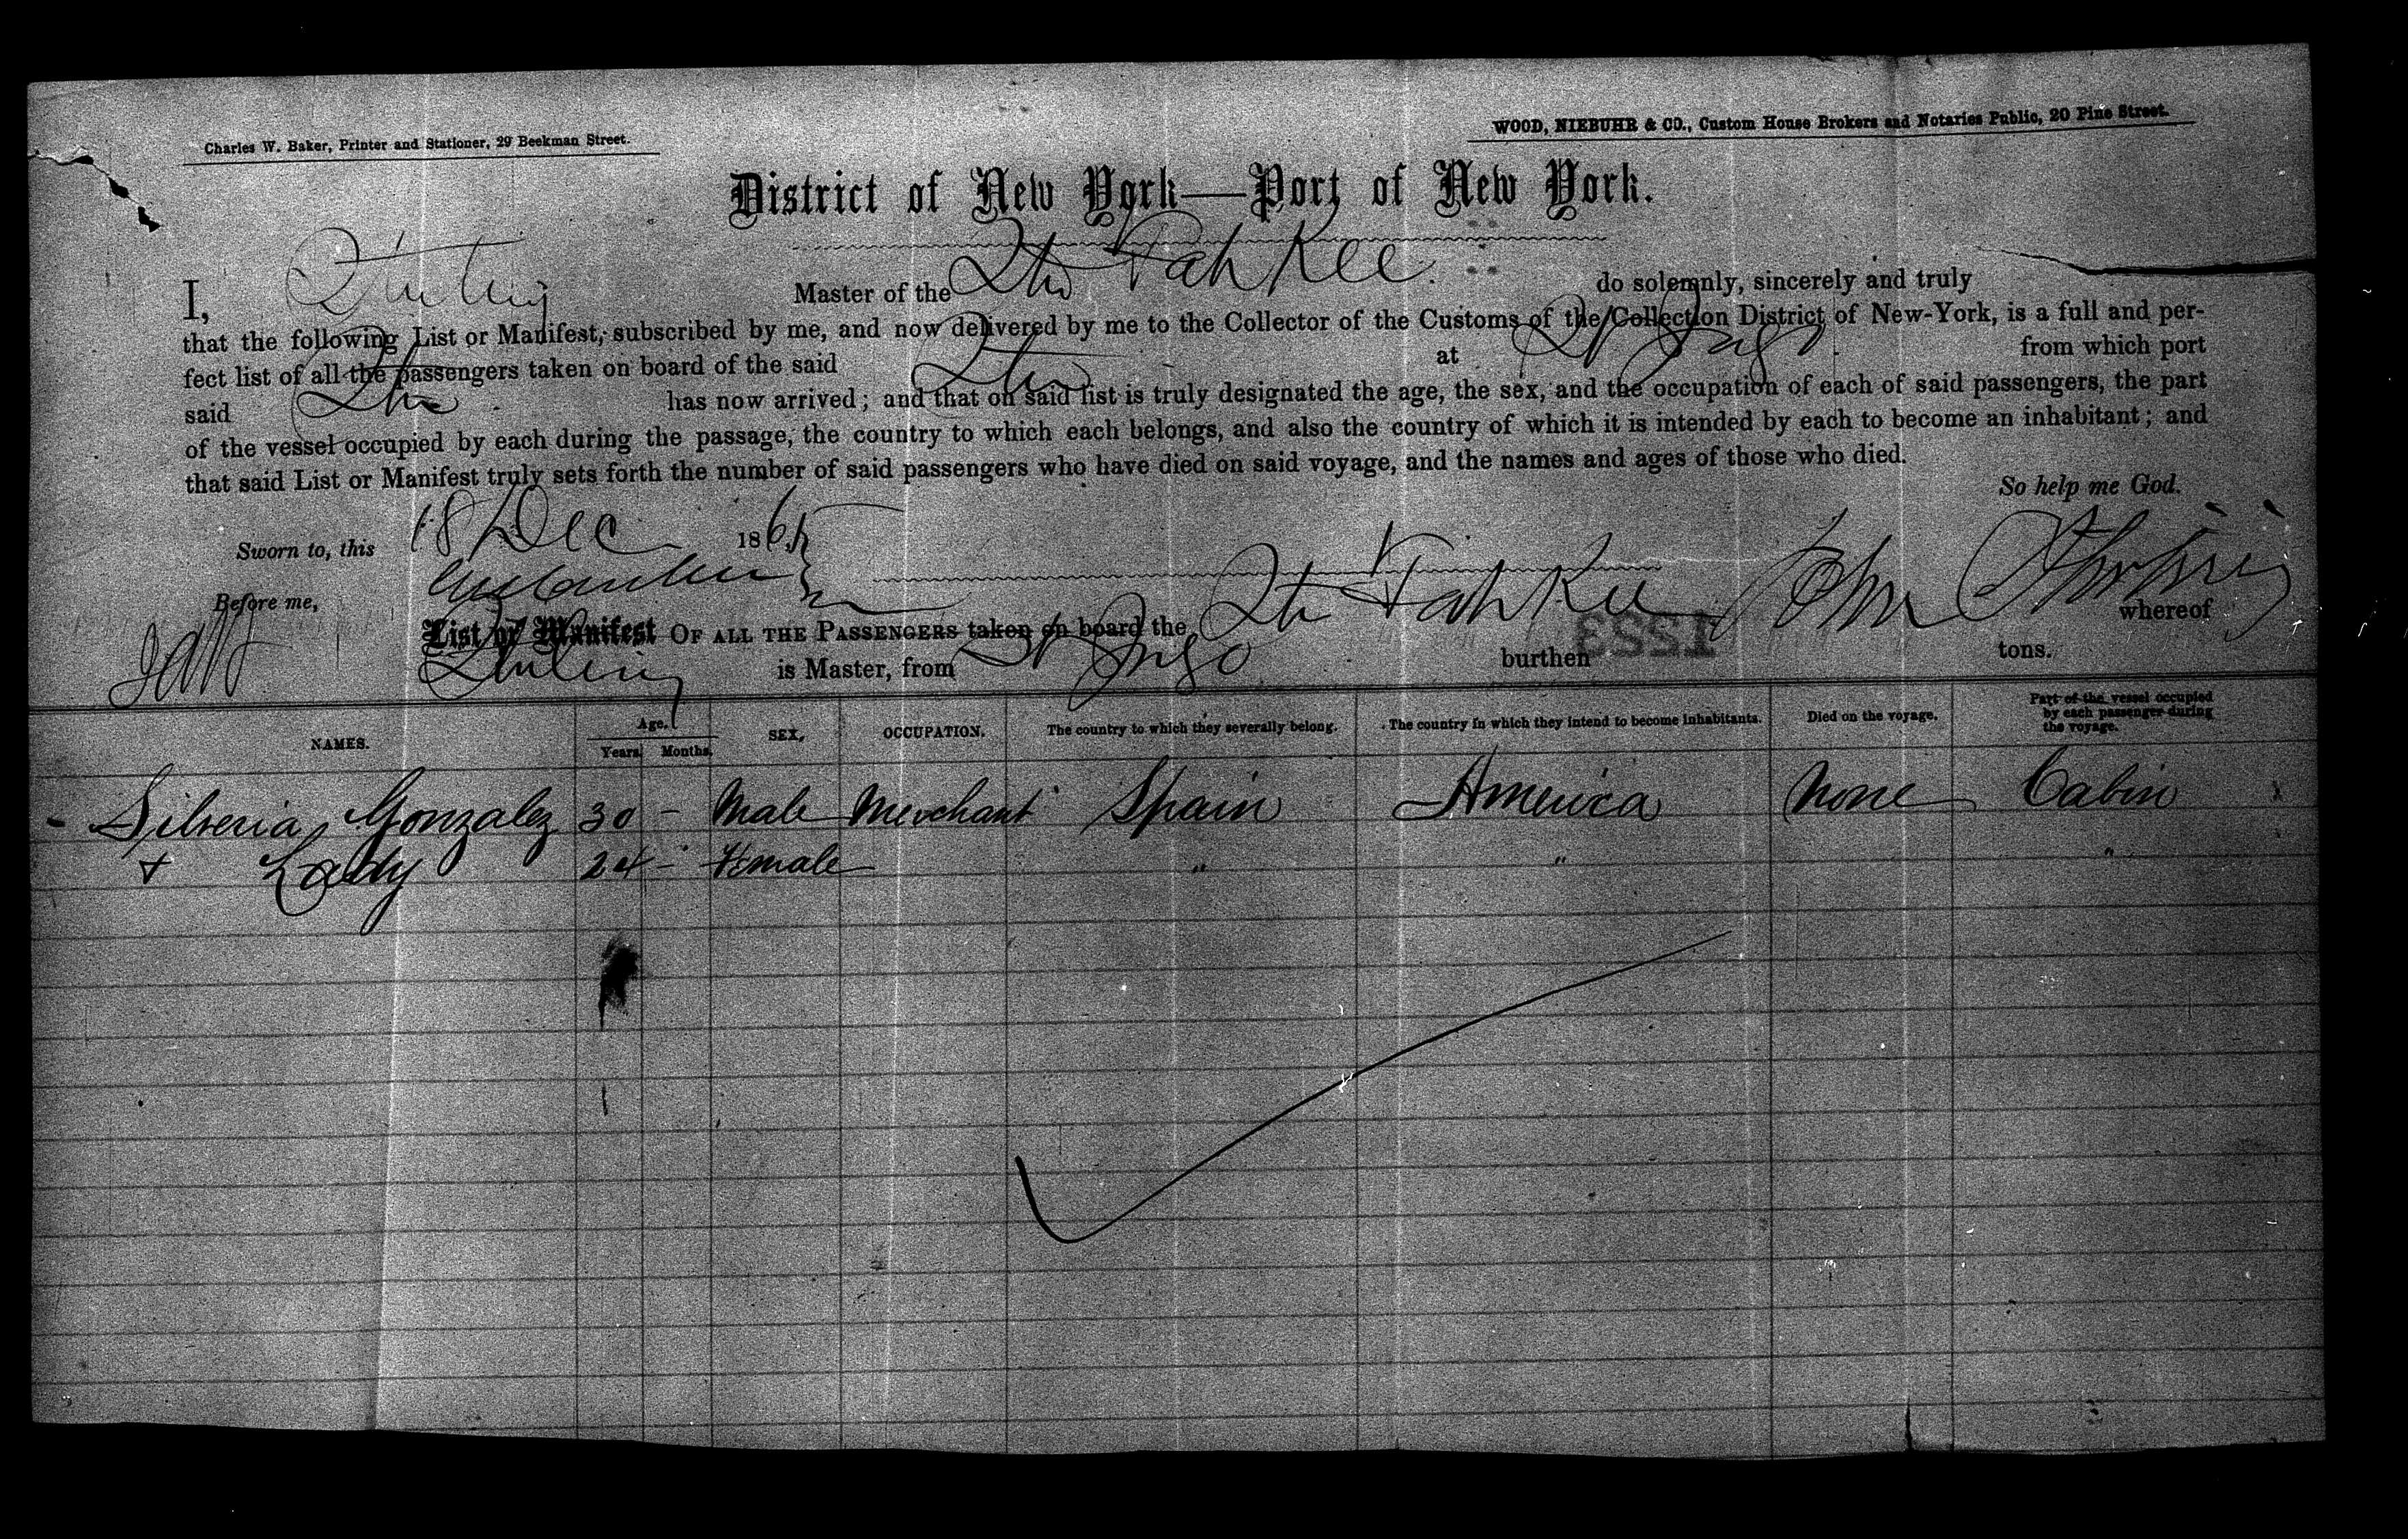 Charles W. Baker, Printer and Stationer, 29 Beekman Street.
WOOD, NIEBUHR & CO., Custom House Brokers and Notaries Public, 20 Pine Street.
District of New York—Port of New York.
I, Master of the Str Yah Kee do solemnly, sincerely and truly
that the following List or Manifest, subscribed by me, and now delivered by me to the Collector of the Customs of the Collection District of New-York, is a full and per-
fect list of all the passengers taken on board of the said Str at St Jago from which port
said Str has now arrived; and that on said list is truly designated the age, the sex, and the occupation of each of said passengers, the part
of the vessel occupied by each during the passage, the country to which each belongs, and also the country of which it is intended by each to become an inhabitant; and
that said List or Manifest truly sets forth the number of said passengers who have died on said voyage, and the names and ages of those who died.
So help me God.
Sworn to, this 18 Dec 186
Before me,
List or Manifest OF ALL THE PASSENGERS taken on board the Str Yah Kee whereof
is Master, from St Jago burthen tons.
1553
NAMES. Age. Years Months. SEX, OCCUPATION. The country to which they severally belong. The country in which they intend to become inhabitants. Died on the voyage. Part of the vessel occupied by each passenger during the voyage.
Silveria Gonzalez 30 - Male Merchant Spain America None Cabin
+ Lady 24 - Female " " "